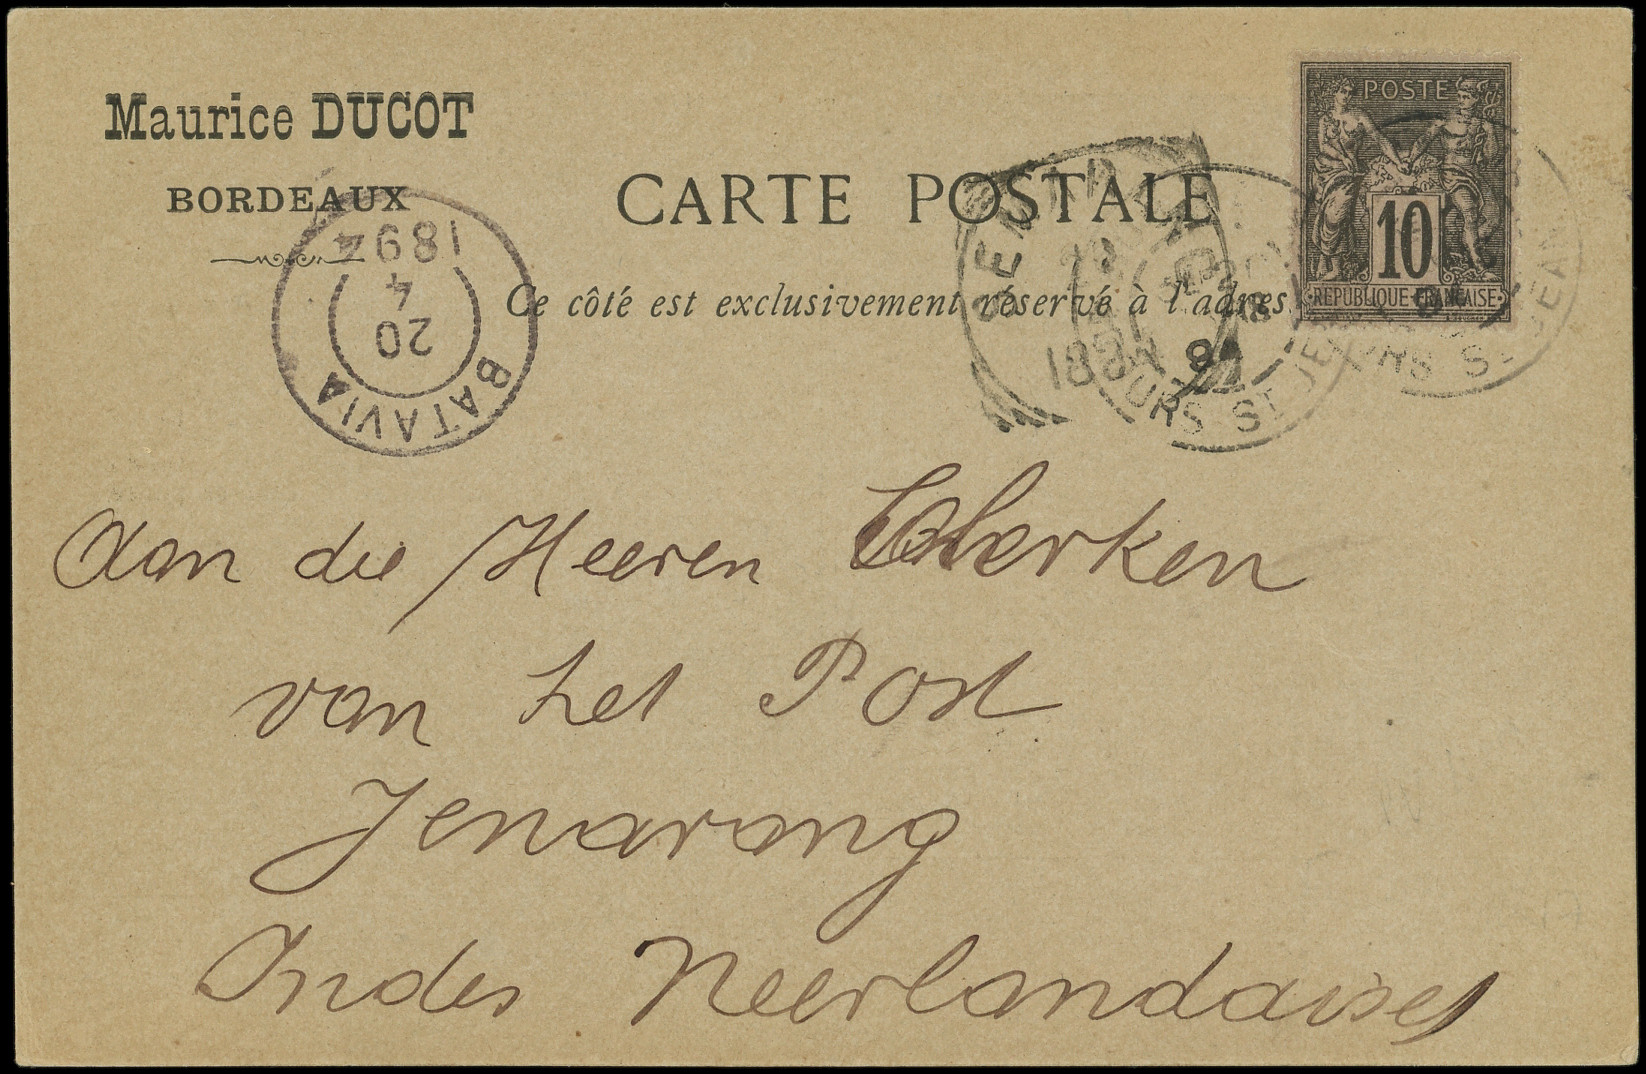 Maurice DUCOT
BORDEAUX
CARTE POSTALE
Ce côté est exclusivement réservé à l'adres
POSTE
10
REPUBLIQUE FRANÇAISE
BATAVIA
20
4
1894
1894
URS ST JE
RS ST JEAN
Aan die Heeren Clerken
van het Post
Jemarang
Indes Neerlandaises